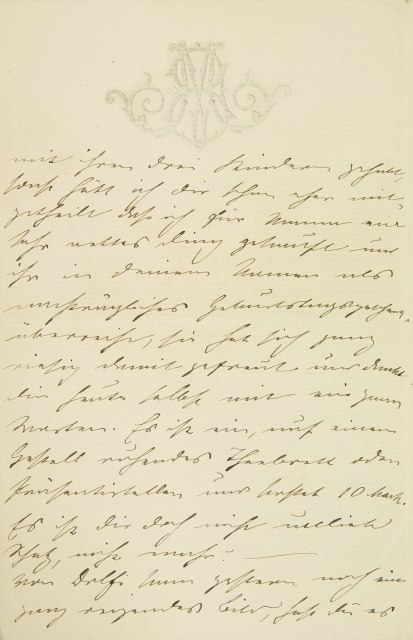 mit ihren drei Kindern gehabt,
sonst hätt ich dir schon eher mit-
getheilt daß ich für Mama ein
sehr nettes Ding gekauft und
ihr in deinem Namen als
nachträgliches Geburtstagsgeschenk
überreichte, sie hat sich ganz
riesig damit gefreut und dankt
dir heute selbst mit ein paar
Worten. Es ist ein, auf einem
Gestell ruhendes Theebrett oder
Präsentirteller und kostet 10 Mark.
Es ist dir doch nicht unlieb
Schatz, nicht wahr? —
von Dolfi kam gestern noch ein
ganz reizendes Bild, hast du es